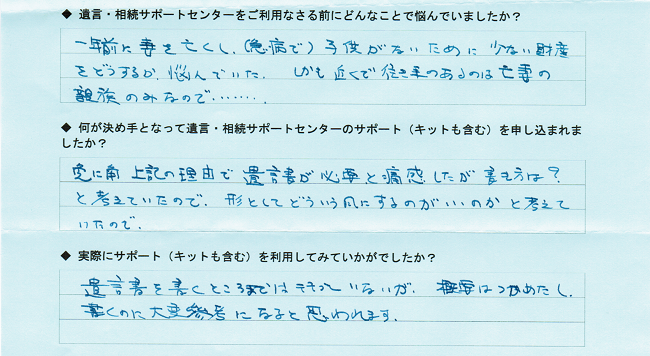 ◆ 遺言・相続サポートセンターをご利用なさる前にどんなことで悩んでいましたか？
一年前に妻を亡くし、（急病で）子供がないために少ない財産
をどうするか、悩んでいた。しかも近くで往き来のあるのは亡妻の
親族のみなので‥‥‥．
◆ 何が決め手となって遺言・相続サポートセンターのサポート（キットも含む）を申し込まれま
したか？
兎に角 上記の理由で遺言書が必要と痛感したが書き方は？
と考えていたので、形としてどういう風にするのがいいのかと考えて
いたので、
◆ 実際にサポート（キットも含む）を利用してみていかがでしたか？
遺言書を書くところまではきまっていないが、概要はつかめたし、
書くのに大変参考になると思われます。